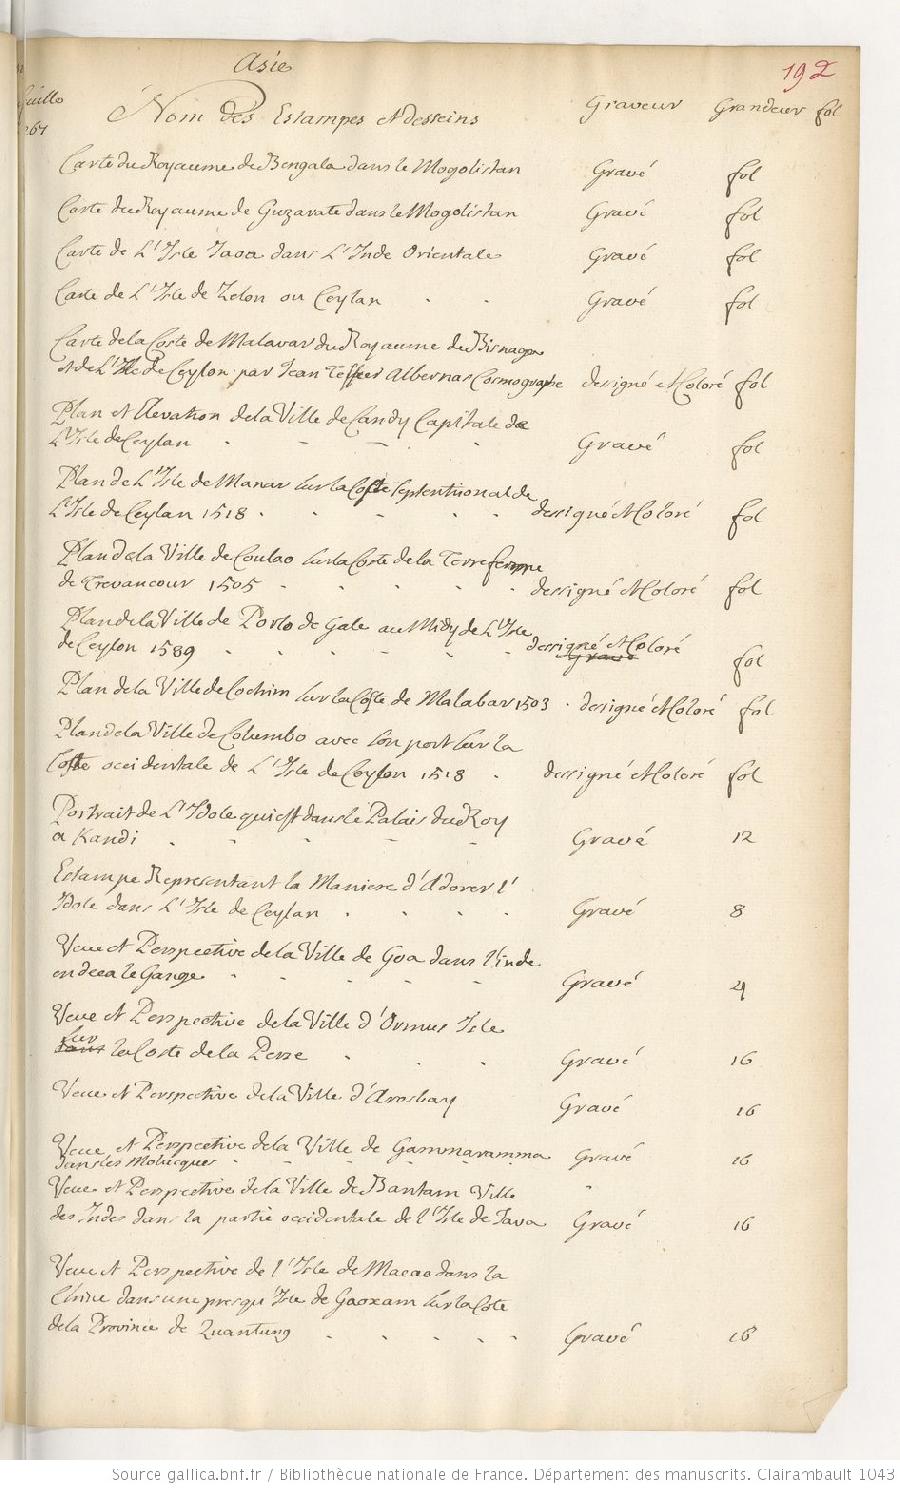 Asie
192
feuillo
267
Nom des Estampes et desseins Graveur Grandeur fol
Carte du Royaume de Bengala dans le Mogolistan Gravé fol
Carte du Royaume de Guzarate dans le Mogolistan Gravé fol
Carte de L'Isle Java dans L'Inde Orientale Gravé fol
Carte de L'Isle de Zelon ou Ceylan Gravé fol
Carte de la Coste de Malavar du Royaume de Bisnaga
et de L'Isle de Ceylon par Jean Albernas Cosmographe dessigné et Coloré fol
Plan et Elevation de la Ville de Candy Capitale de
L'Isle de Ceylan Gravé fol
Plan de L'Isle de Manar sur la Coste Septentrional de
L'Isle de Ceylan 1518 dessigné et Coloré fol
Plan de la Ville de Coulao sur la Coste de la Terre ferme
de Trevancour 1505 dessigné et Coloré fol
Plan de la Ville de Porto de Gale au Midy de L'Isle
de Ceylon 1589 dessigné et Coloré fol
Gravé
Plan de la Ville de Cochim sur la Coste de Malabar 1503 dessigné et Coloré fol
Plan de la Ville de Columbo avec son port sur la
Coste occidentale de L'Isle de Ceylon 1518 dessigné et Coloré fol
Portrait de L'Idole qui est dans le Palais du Roy
a Kandi Gravé 12
Estampe Representant la Maniere d'Adorer l'
Idole dans L'Isle de Ceylan Gravé 8
Veue et Perspective de la Ville de Goa dans l'inde
en deca le Gange Gravé 4
Veue et Perspective de la Ville d'Ormus Isle
sur
dans la Coste de la Perse Gravé 16
Veue et Perspective de la Ville d'Arosbay Gravé 16
Veue et Perspective de la Ville de Gammaramma Gravé 16
dans les Molucques
Veue et Perspective de la Ville de Bantam Ville
des Indes dans la partie occidentale de l'Isle de Java Gravé 16
Veue et Perspective de l'Isle de Macao dans la
Chine dans une presqu'Isle de Gaoxam sur la Coste
de la Province de Quantung Gravé 16
Source gallica.bnf.fr / Bibliothèque nationale de France. Département des manuscrits. Clairambault 1043